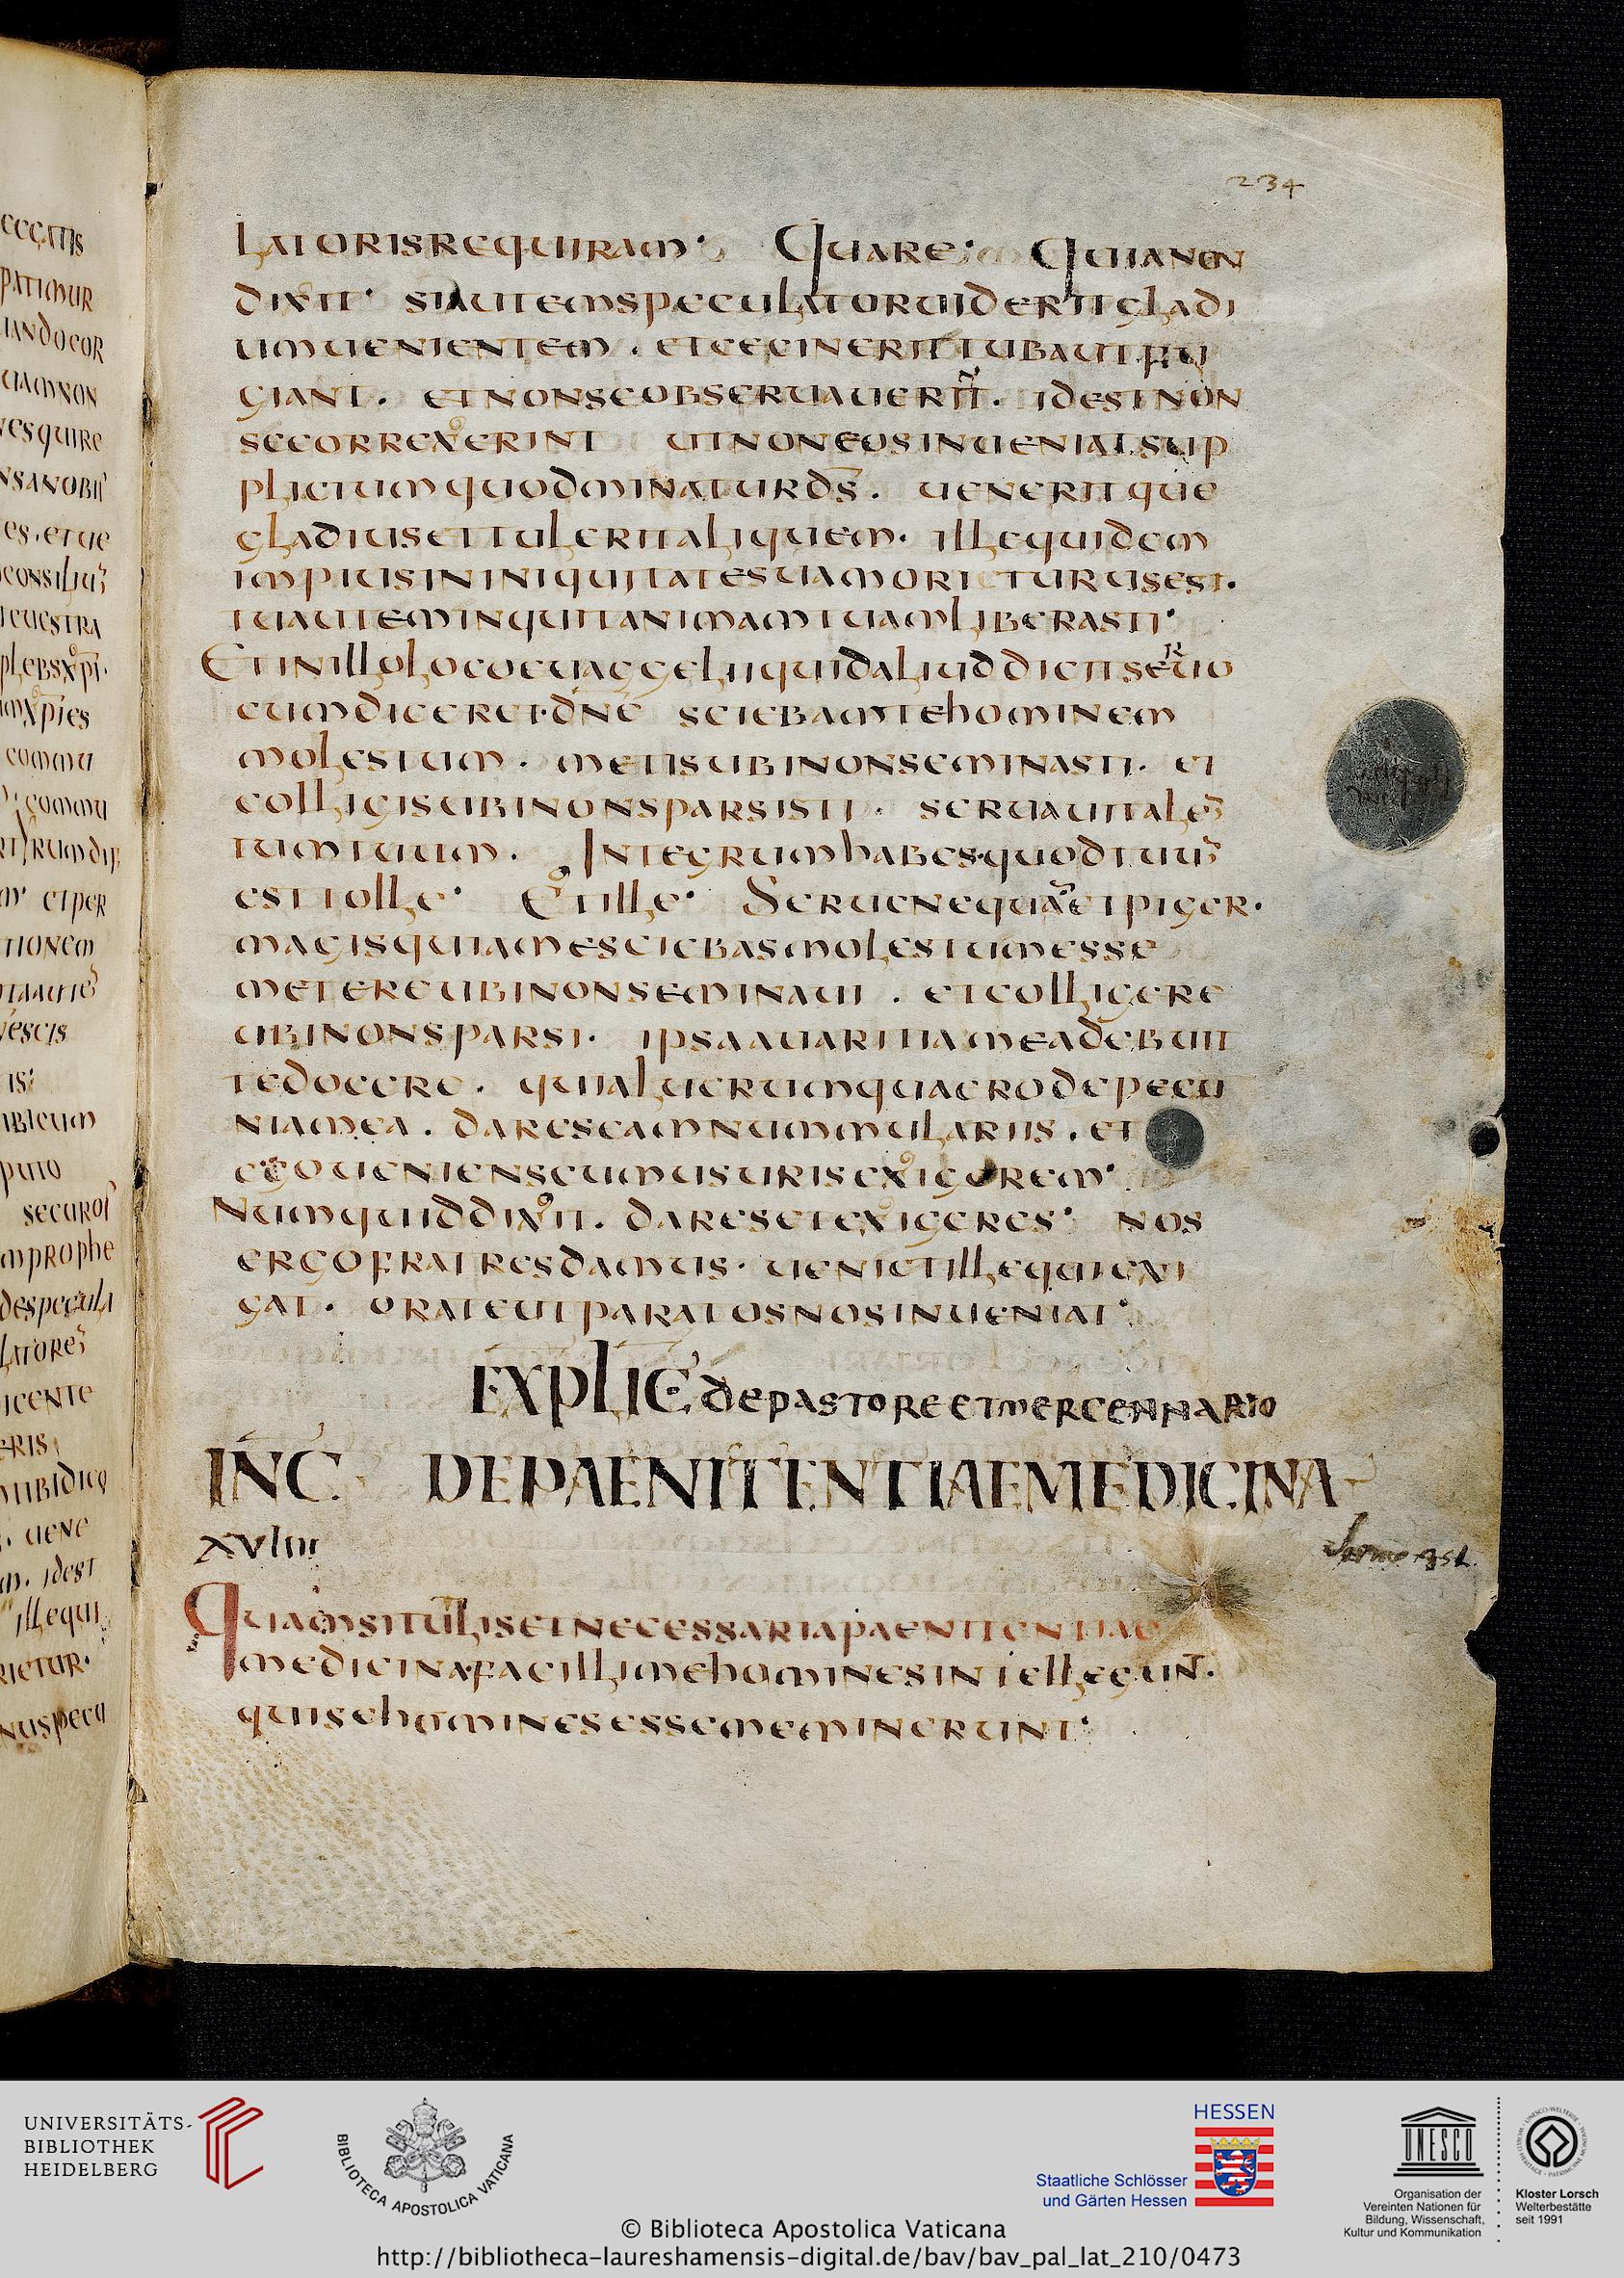 234
latorisrequiram· Quare· Quianon
dixit· siautemspeculatoruideritgladi
umuenientem. etcecineritubautfu
giant. etnonseobseruauerīt. idestnon
secorrexerint utnoneosinueniatsup
pliciumquodminaturds̄. ueneritque
gladiusettuleritaliquem· illequidem
impiusininiquitatesuamoriturusest.
tuauteminquitanimamtuamliberasti·
Etinilloloco euaggeliiquidaliuddicitseruo
cumdiceretdn̄e sciebamtehominem
molestum. metisubinonseminasti. et
colligisubinonsparsisti. seruauitalen̄
tumtuum. Integrumhabesquodtuū
esttolle· Etille· Seruenequāetpiger·
magisquiamesciebasmolestumesse
metereubinonseminaui. etcolligere
ubinonsparsi. ipsaauaritiameadebuit
tedocere. quialucrumquaerodepecu
niamea. dareseamnummulariis. et
egoueniensc umusurisexigerem·
Numquiddixit. daresetexigeres· nos
ergofratresdamus. uenietillequiexi
gat. orateutparatosnosinueniat·
EXPLIC depastoreetmercennario
INC DEPAENITENTIAEMEDICINA
XVIIII
Sermo 351.
Quamsitutilisetnecessariapaenitentiae
medicina·facillimehominesintellegunt.
quisehominesessememinerunt·
cccatis
patimur
uandocor
uamnon
esquire
nsanobis
es. etue
consiliū
uestra
plebsxp̄i·
xp̄ies
commu
commu
etper
tionem
uescis
is·
ibicum
puto
securos
mprophe
despecula
latorē
icente
eris
tibidico
. uene
m. idest
illequi
rietur·
nuspecu
UNIVERSITÄTS-
BIBLIOTHEK
HEIDELBERG
BIBLIOTECA APOSTOLICA VATICANA
HESSEN
Staatliche Schlösser
und Gärten Hessen
UNESCO
Organisation der
Vereinten Nationen für
Bildung, Wissenschaft,
Kultur und Kommunikation
Kloster Lorsch
Welterbestätte
seit 1991
© Biblioteca Apostolica Vaticana
http://bibliotheca-laureshamensis-digital.de/bav/bav_pal_lat_210/0473